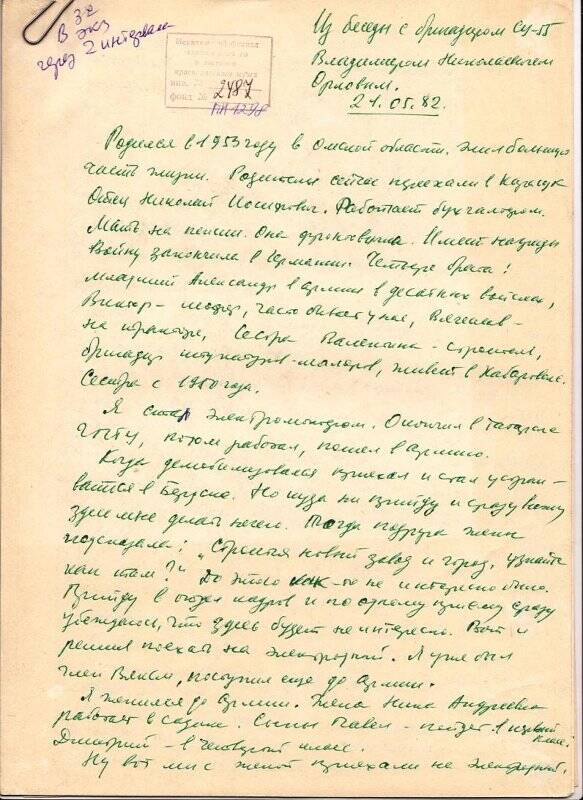 В 3х
экз
через 2 интервала
Искитимский
музея
инв. №
фонд № 2487
Из беседы с бригадиром СУ-
Владимиром Николаевичем
Орловым.
21.05.82.
Родился в 1953 году в Омской области. Жил большую
часть жизни. Родители сейчас приехали в
Отец Николай Иосифович. Работает бухгалтером.
Мать на пенсии. Она фронтовичка. Имеет награды
Войну закончила в Германии. Четыре брата:
младший Александр в армии в десантных войсках,
Виктор - часто бывает у нас, Вячеслав -
на Сестра Валентина - строитель,
бригадир штукатуров-маляров, живёт в Хабаровске.
Сестра с 1950 года.
Я стал электромонтёром. Окончил в Татарске
ГПТУ, потом работал, пошел в армию.
Когда демобилизовался приехал и стал устраи-
ваться в Бердске. Но куда ни прийду и сразу вижу
здесь мне делать нечего. Тогда подруга жены
подсказала: „Строится новый завод и город, узнайте
как там?" До этого как-то не интересно было.
Прийду в отдел кадров и по приёму сразу
убеждаюсь, что здесь будет не интересно. Вот и
решил поехать на Электродный. Я уже был
член ВЛКСМ, поступил еще до армии.
Я женился до армии. Жена Нина Андреевна
работает в садике. Сыны Павел - пойдет в первый класс,
Дмитрий - в четвертый класс.
Ну вот мы с женой приехали на Электродный,